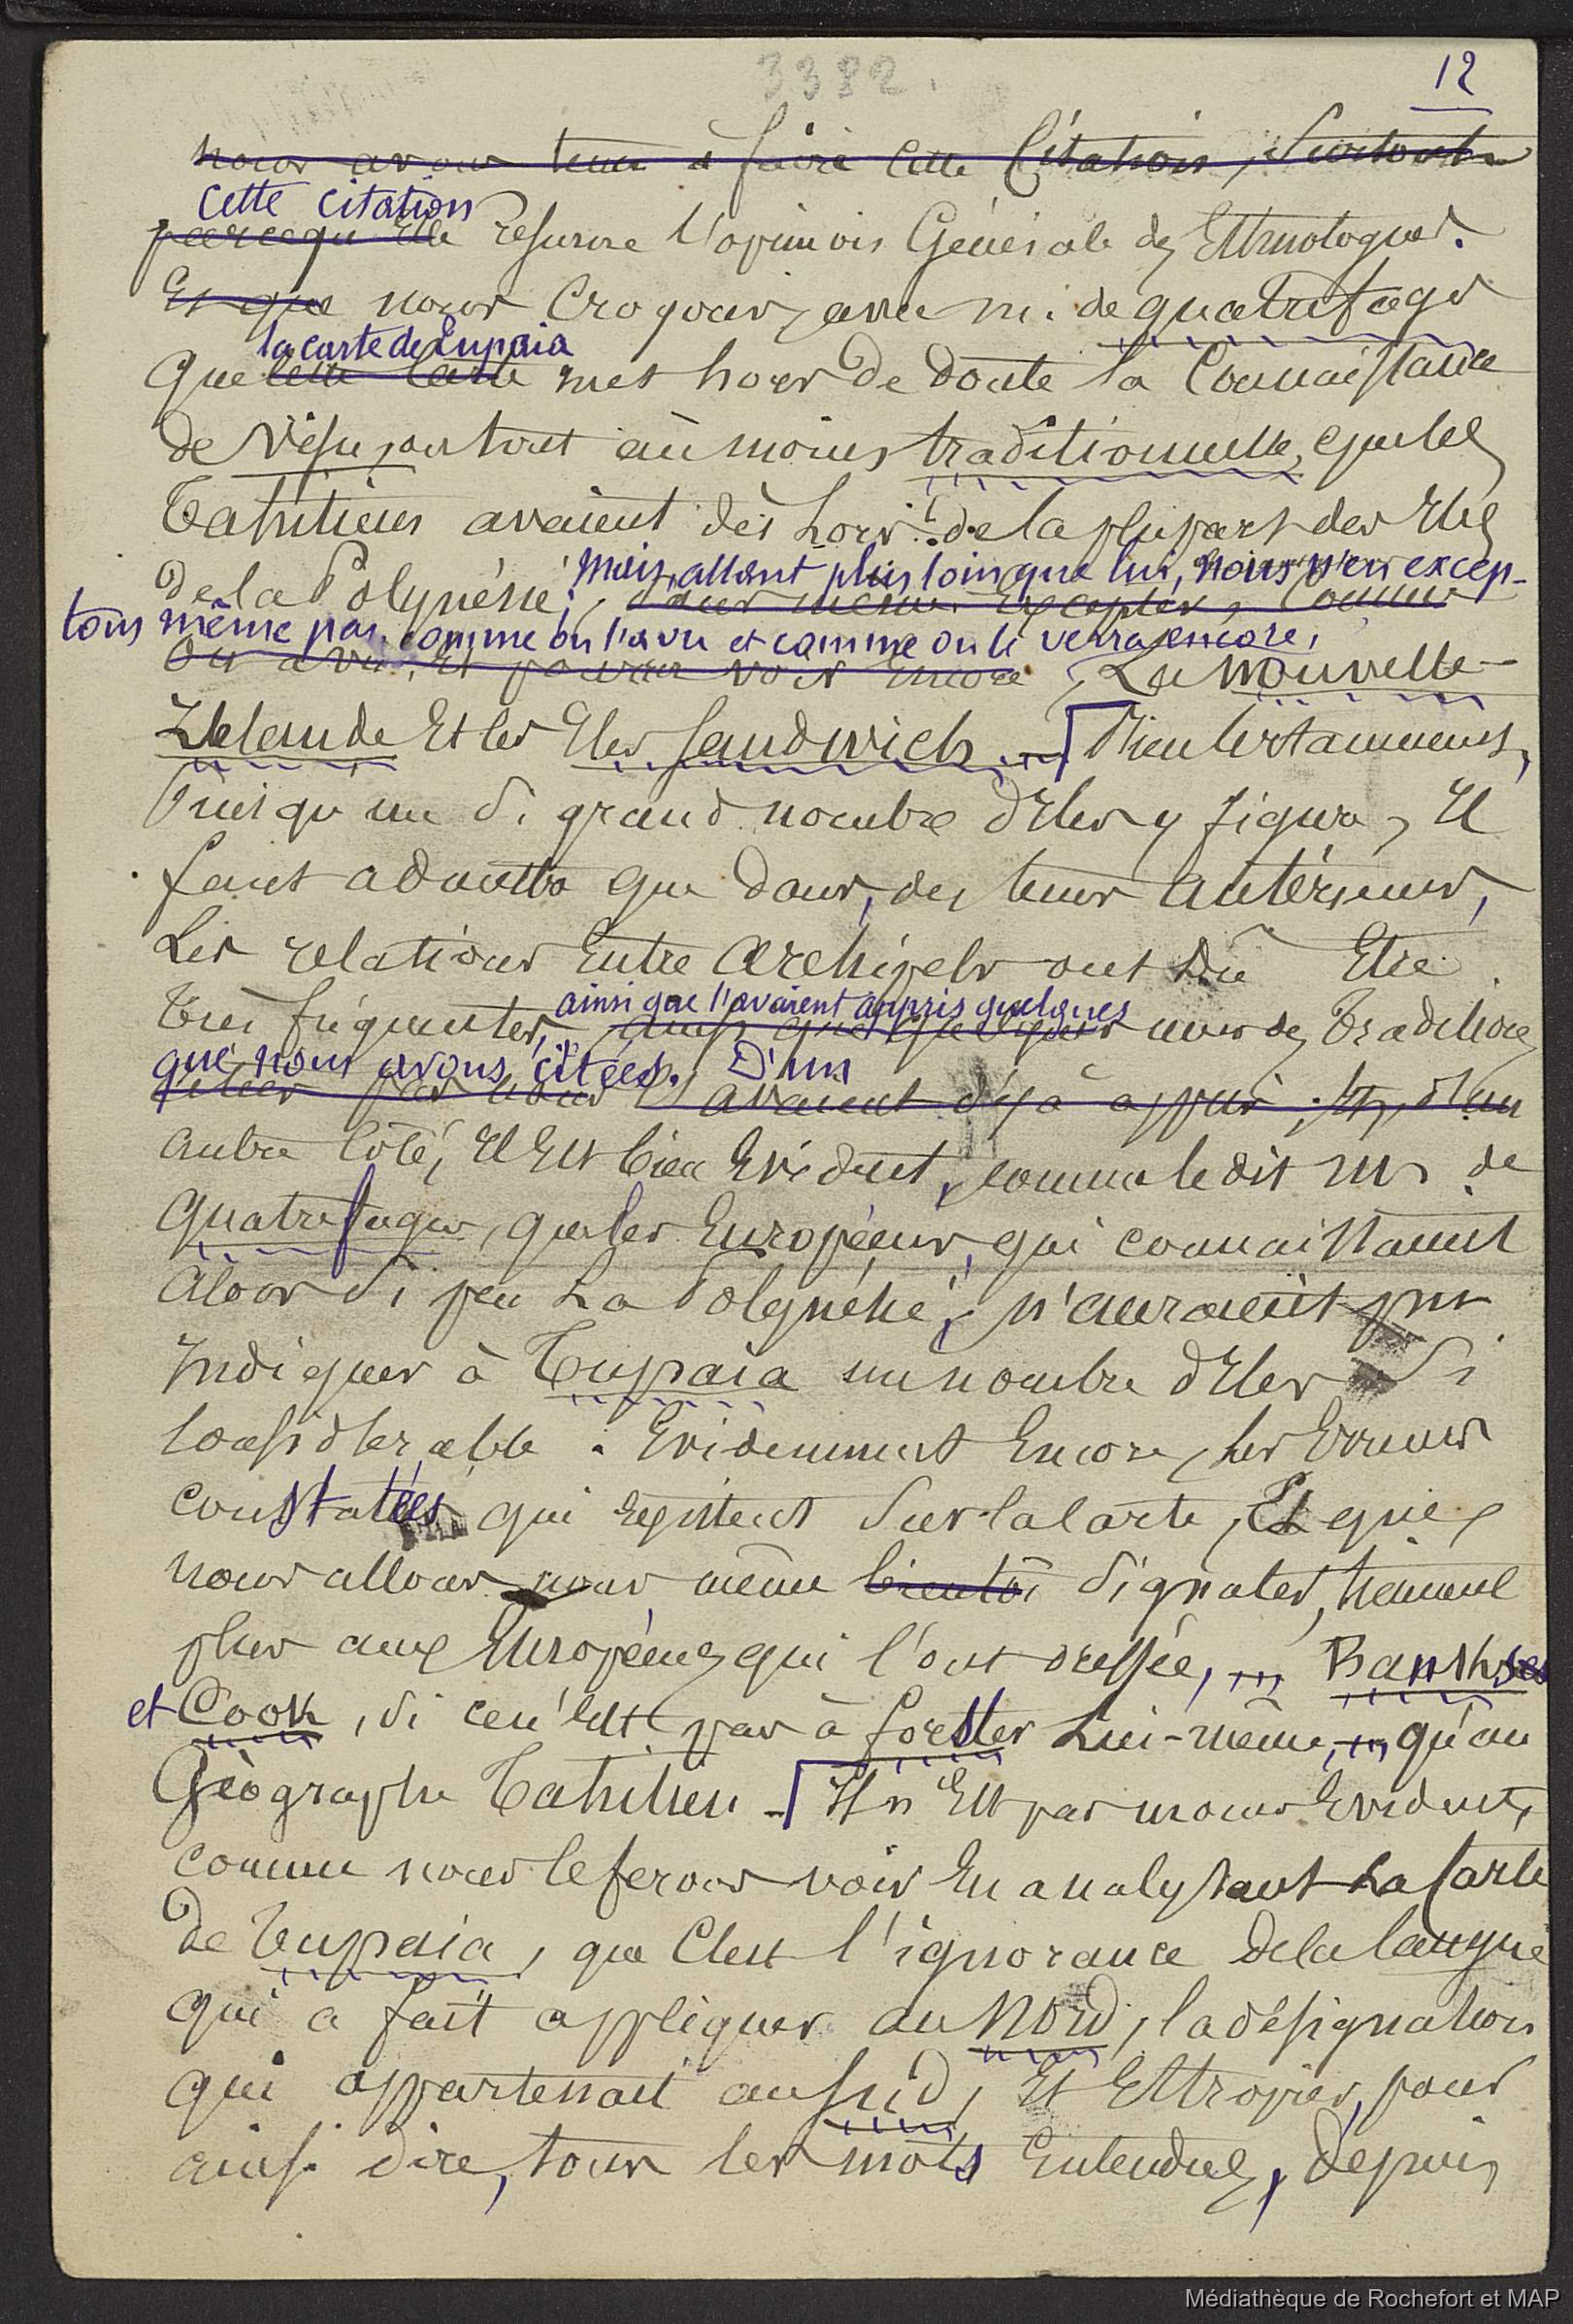 3382.
12
nous avons tenu à faire cette Citation, surtout
cette citation
parcequ'elle résume l'opinion Générale des Ethnologues.
Et que nous croyons, avec m. de quatrefages
la carte de Tupaia
que cette carte met hors de doute la Connaissance
de visu, ou tout au moins traditionnelle, que les
Tahitiens avaient dès Lors de la plupart des Iles
mais, allant plus loin que lui, nous n'en excep-
de la Polynésie, sans même excepter, Comme
tons même pas, comme on l'a vu et comme on le verra encore,
on a vu, Et pourra voir encore, La Nouvelle-
Zélande Et les Iles Sandwich. — Bien Certainement,
Puisqu'un si grand nombre d'Iles y figure, Il
faut admettre que dans, des tems antérieurs,
Les relations Entre Archipels ont Dû Etre
ainsi que l'avaient appris quelques
Très fréquentes, ainsi que quelques unes des Traditions
que nous avons citées. D'un
citées par nous l'avaient déjà appris. Et, d'un
autre Côté, Il Est bien Evident, comme le dit m. de
Quatrefages, que les Européens, qui connaissaient
alors si peu La Polynésie, n'auraient pu
Indiquer à Tupaia un nombre d'Iles si
Considérable. Evidemment Encore, les Erreurs
constatées qui Existent sur la Carte, Et que
nous allons nous même bientôt signaler, tiennent
plus aux Européens qui l'ont dressée, — Banks
et Cook, si ce n'Est pas à Forster Lui-même, — qu'au
Géographe Tahitien. — Il n'Est pas moins Evident,
comme nous le ferons voir En analysant La Carte
de Tupaia, que C'est l'ignorance de la langue
qui a fait appliquer au Nord, la désignation
qui appartenait au Sud, Et Estropier, pour
ainsi dire, tous les mots Entendus, depuis
Médiathèque de Rochefort et MAP